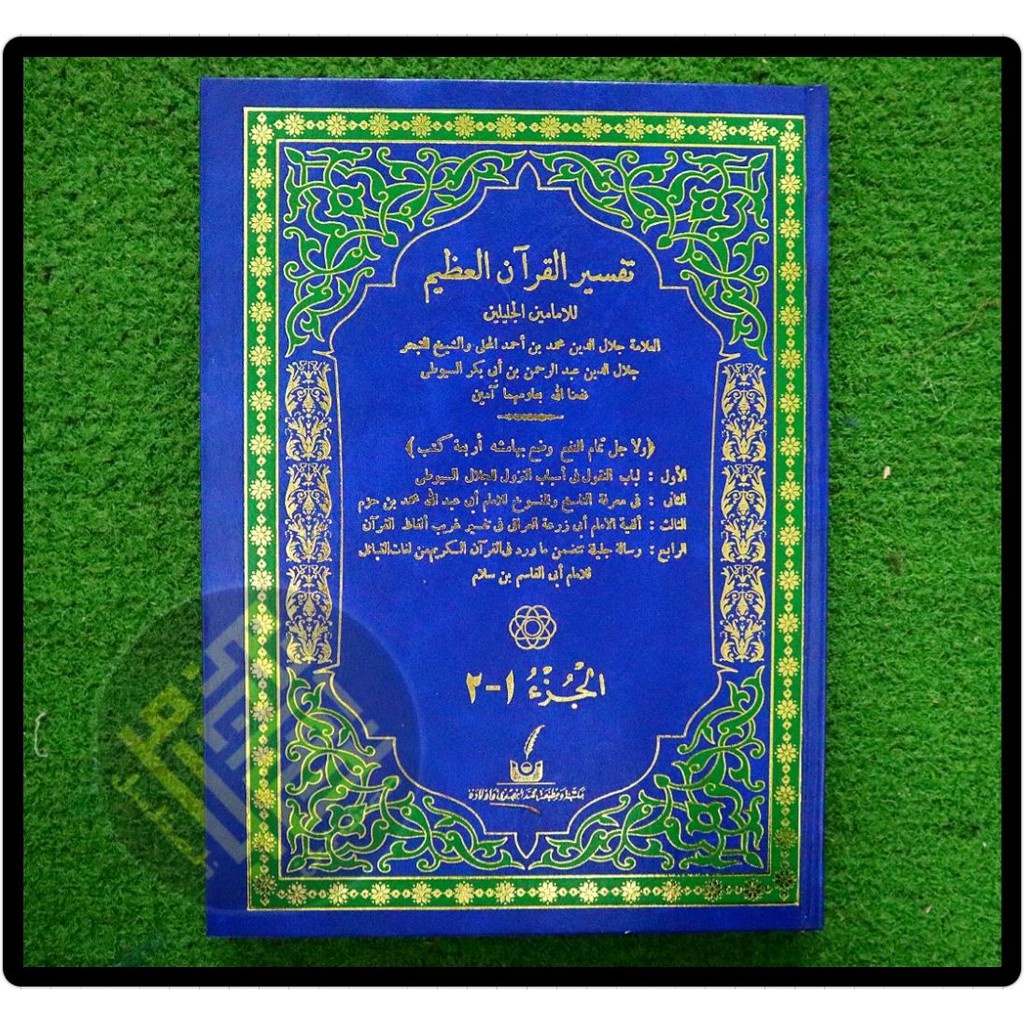 تفسير القرآن العظيم
للامامين الجليلين
العلامة جلال الدين محمد بن أحمد المحلى والشيخ المتبحر
جلال الدين عبد الرحمن بن أبى بكر السيوطى
نفعنا الله بعلومهما آمين
﴿ولا جل تمام النفع وضع بهامشه أربعة كتب﴾
الأول : لباب النقول فى أسباب النزول للجلال السيوطى
الثانى : فى معرفة الناسخ والمنسوخ للامام أبى عبد الله محمد بن حزم
الثالث : ألفية الامام أبى زرعة العراقى فى تفسير غريب ألفاظ القرآن
الرابع : رسالة جليلة تتضمن ما ورد فى القرآن الكريم من لغات القبائل
للامام أبى القاسم بن سلام
الجُزْءُ ١-٢